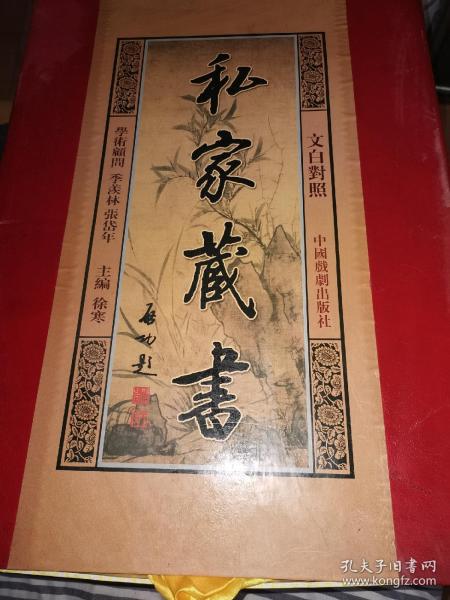 私家藏書
文白對照
中國戲劇出版社
學術顧問 季羨林 張岱年
主編 徐寒
啓功題
孔夫子旧书网
www.kongfz.com